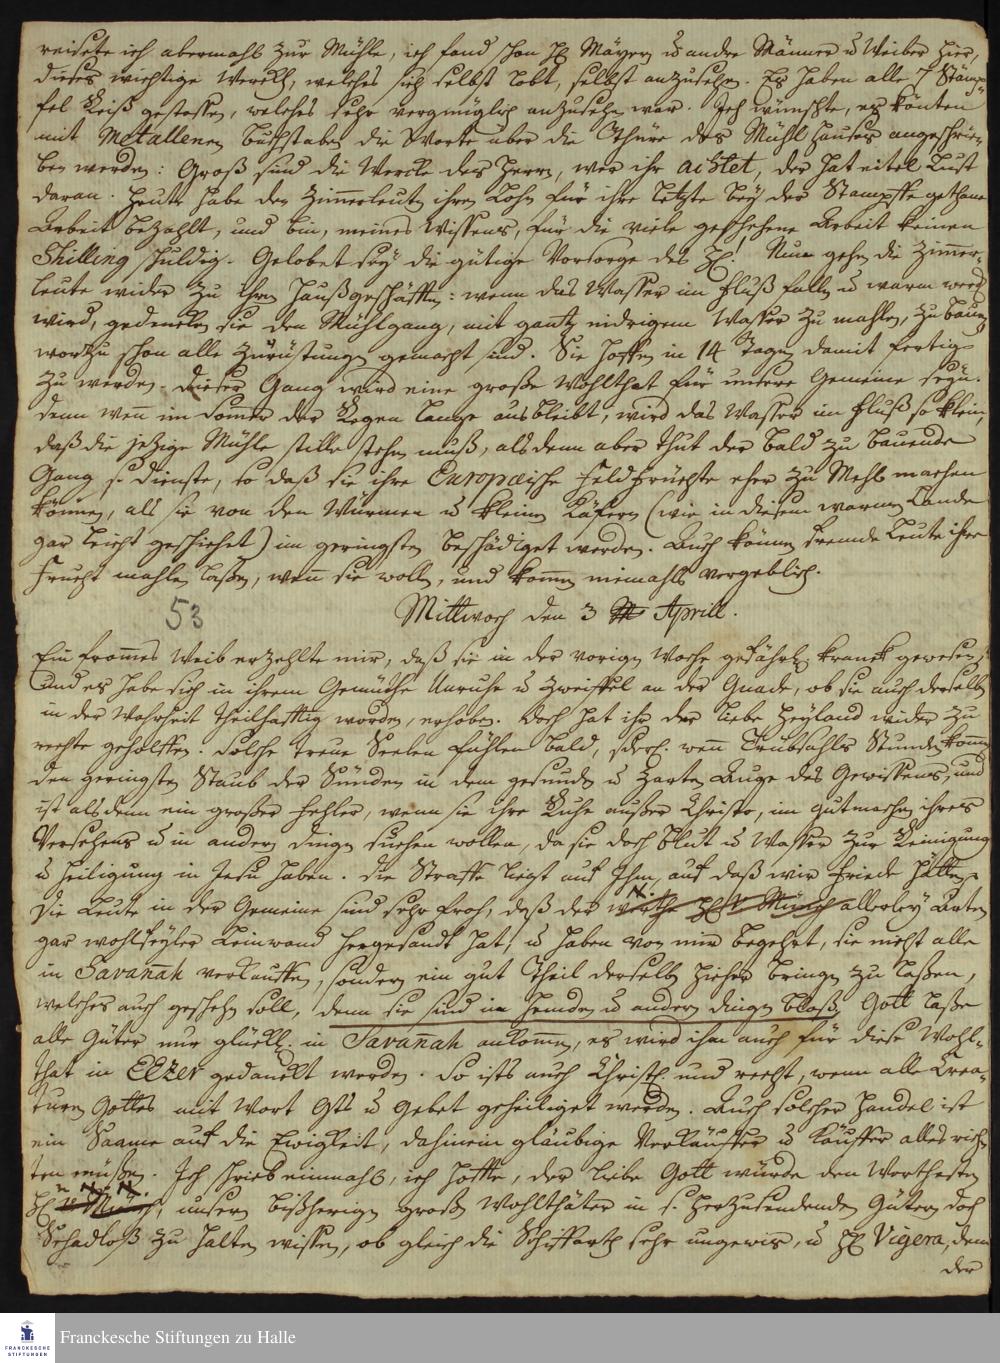 reisete ich abermahls zur Mühle, ich fand schon H. Mayern u. andre Männer u. Weiber hier,
dieses wichtige Werck, welches sich selbst lobt, selbst anzusehen. Es haben alle 7 Stamp-
fel Reiß gestossen, welches sehr vergnüglich anzusehen war. Ich wünschte, es könten
mit Metallenen Buchstaben die Worte über die Thüre des Mühl Hauses angeschrie-
ben werden: Groß sind die Wercke des Herrn, wer ihr achtet, der hat eitel Lust
daran. Heute habe den Zimmerleuten ihren Lohn für ihre letzte bey der Stampffe gethane
Arbeit bezahlt, und bin, meines Wissens, für die viele geschehene Arbeit keinen
Shilling schuldig. Gelobet sey die gütige Vorsorge des H! Nun gehen die Zimmer-
leute wider zu ihren Haußgeschäfften: wenn das Wasser im Fluß fallen u. warm
wird, gedencken sie den Mühlgang, mit gantz nidrigem Wasser zu mahlen, zu bauen,
worzu schon alle Zurüstungen gemacht sind. Sie hoffen in 14 Tagen damit fertig
zu werden. Dieser Gang wird eine große Wohlthat für unsere Gemeine seyn.
denn wenn im Somer der Regen lange ausbleibt, wird das Wasser im Fluß so klein,
daß die jetzige Mühle stille stehen muß, alsdenn aber thut der bald zu bauende
Gang s. Dienste, so daß sie ihre Europaische Feld Früchte eher zu Mehl machen
können, als sie von den Würmen u. kleinen Käfern (wie in diesem warmen Lande
gar leicht geschiehet) im geringsten beschädiget werden. Auch können fremde Leute ihre
Frucht mahlen laßen, wenn sie wollen, und kommen niemahls vergeblich.
53
Mittwoch den 3 Aprill.
Ein frommes Weib erzehlte mir, daß sie in der vorigen Woche gefährl. kranck gewesen,
und es habe sich in ihrem Gemüthe Unruhe u. Zweiffel an der Gnade, ob sie auch derselben
in der Wahrheit theilhafftig worden, erhoben. Doch hat ihr der liebe Heyland wider zu
rechte geholffen. Solche treue Seelen fühlen bald, wenn Trübsahls Stunden kommen,
den geringsten Staub der Sünden in dem gesunden u. zarten Auge des Gewissens, und
ist alsdenn ein großer Fehler, wenn sie ihre Ruhe außer Christo, im gutmachen ihres
Versehens u. in andern Dingen suchen wollen, da sie doch Blut u. Wasser zur Reinigung
u. Heiligung in Jesu haben. Die Straffe liegt auf Ihm, auf daß wir Friede hätten.
Die Leute in der Gemeine sind sehr froh, daß der werthe H. v. Münch allerley Arten
gar wohlfeyler Leinwand hergesandt hat, u. haben von mir begehrt, sie nicht alle
in Savañah verkauffen, sondern ein gut Theil derselben hieher bringen zu laßen,
welches auch geschehen soll, denn sie sind in Hemden u. andern Dingen bloß. Gott laße
alle Güter nur glückl. in Savañah ankommen, es wird ihm auch für diese Wohl-
that in Ebzer gedanckt werden. So ists auch Christl. und recht, wenn alle Crea-
turen Gottes mit Wort Gotts u. Gebet geheiliget werden. Auch solcher Handel ist
ein Saame auf die Ewigkeit, dahinein gläubige Verkäuffer u. Käuffer alles rich-
ten müßen. Ich schrieb einmahl, ich hoffe, der liebe Gott würde den Werthesten
H. v. Münch, unsern bißherigen großen Wohlthäter in s. herzusendenden Gütern doch
Schadloß zu halten wissen, ob gleich die Schiffarth sehr ungewis, u. H. Vigera, dem
der
Franckesche Stiftungen zu Halle
FRANCKESCHE
STIFTUNGEN